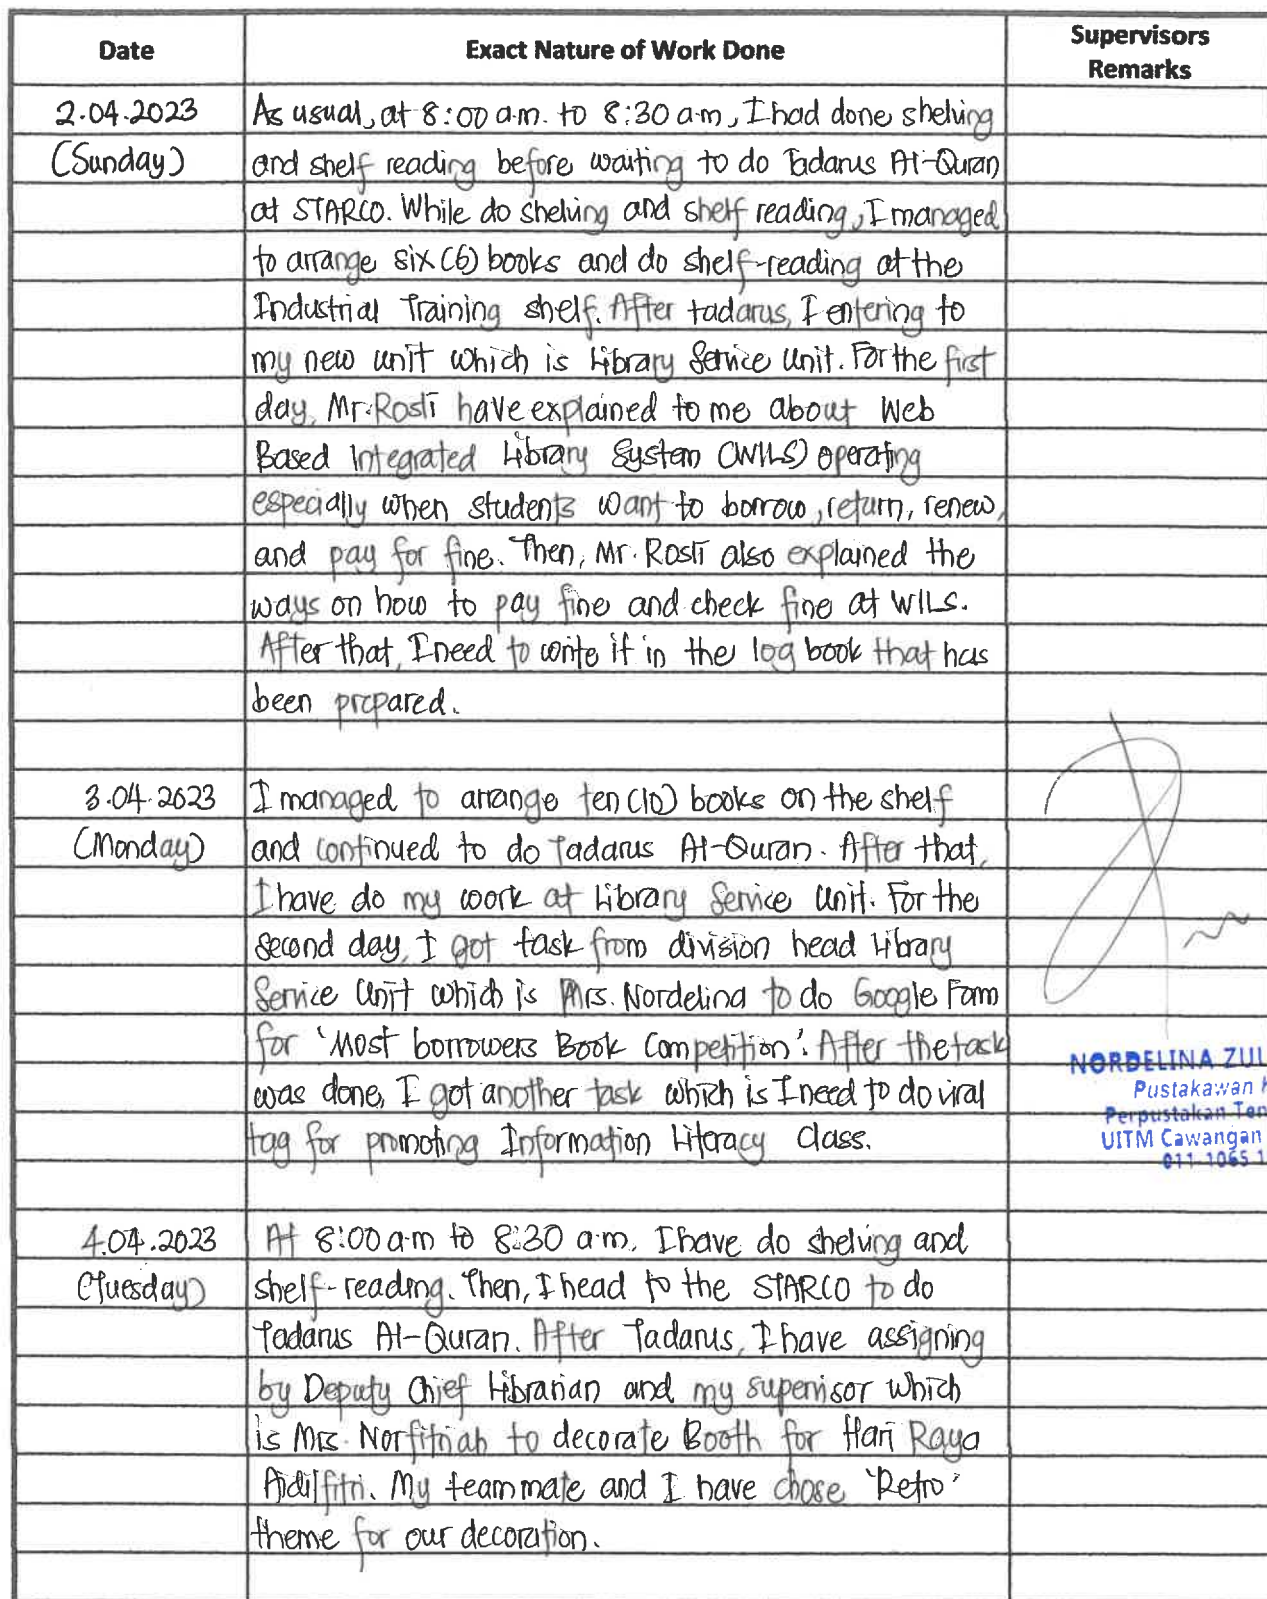 Date Exact Nature of Work Done Supervisors Remarks
2.04.2023 As usual, at 8:00 a.m. to 8:30 a.m, I had done shelving
(Sunday) and shelf reading before waiting to do Tadarus Al-Quran
at STARCO. While do shelving and shelf reading, I managed
to arrange six (6) books and do shelf-reading at the
Industrial Training shelf. After tadarus, I entering to
my new unit which is Library Service Unit. For the first
day, Mr. Rosti have explained to me about Web
Based Integrated Library System (WILS) operating
especially when students want to borrow, return, renew,
and pay for fine. Then, Mr. Rosti also explained the
ways on how to pay fine and check fine at WILS.
After that, I need to write it in the log book that has
been prepared.
3.04.2023 I managed to arrange ten (10) books on the shelf
(Monday) and continued to do Tadarus Al-Quran. After that,
I have do my work at Library Service Unit. For the
second day, I got task from division head Library
Service Unit which is Mrs. Nordelina to do Google Form
for 'Most borrowers Book Competition'. After the task
was done, I got another task which is I need to do viral
tag for promoting Information Literacy Class.
NORDELINA ZUL
Pustakawan
Perpustakan Ten
UITM Cawangan
011-1065 1
4.04.2023 At 8:00 a.m to 8:30 a.m, I have do shelving and
(Tuesday) shelf-reading. Then, I head to the STARCO to do
Tadarus Al-Quran. After Tadarus, I have assigning
by Deputy Chief Librarian and my supervisor which
is Mrs. Norfitriah to decorate Booth for Hari Raya
Aidilfitri. My teammate and I have chose 'Retro'
theme for our decoration.